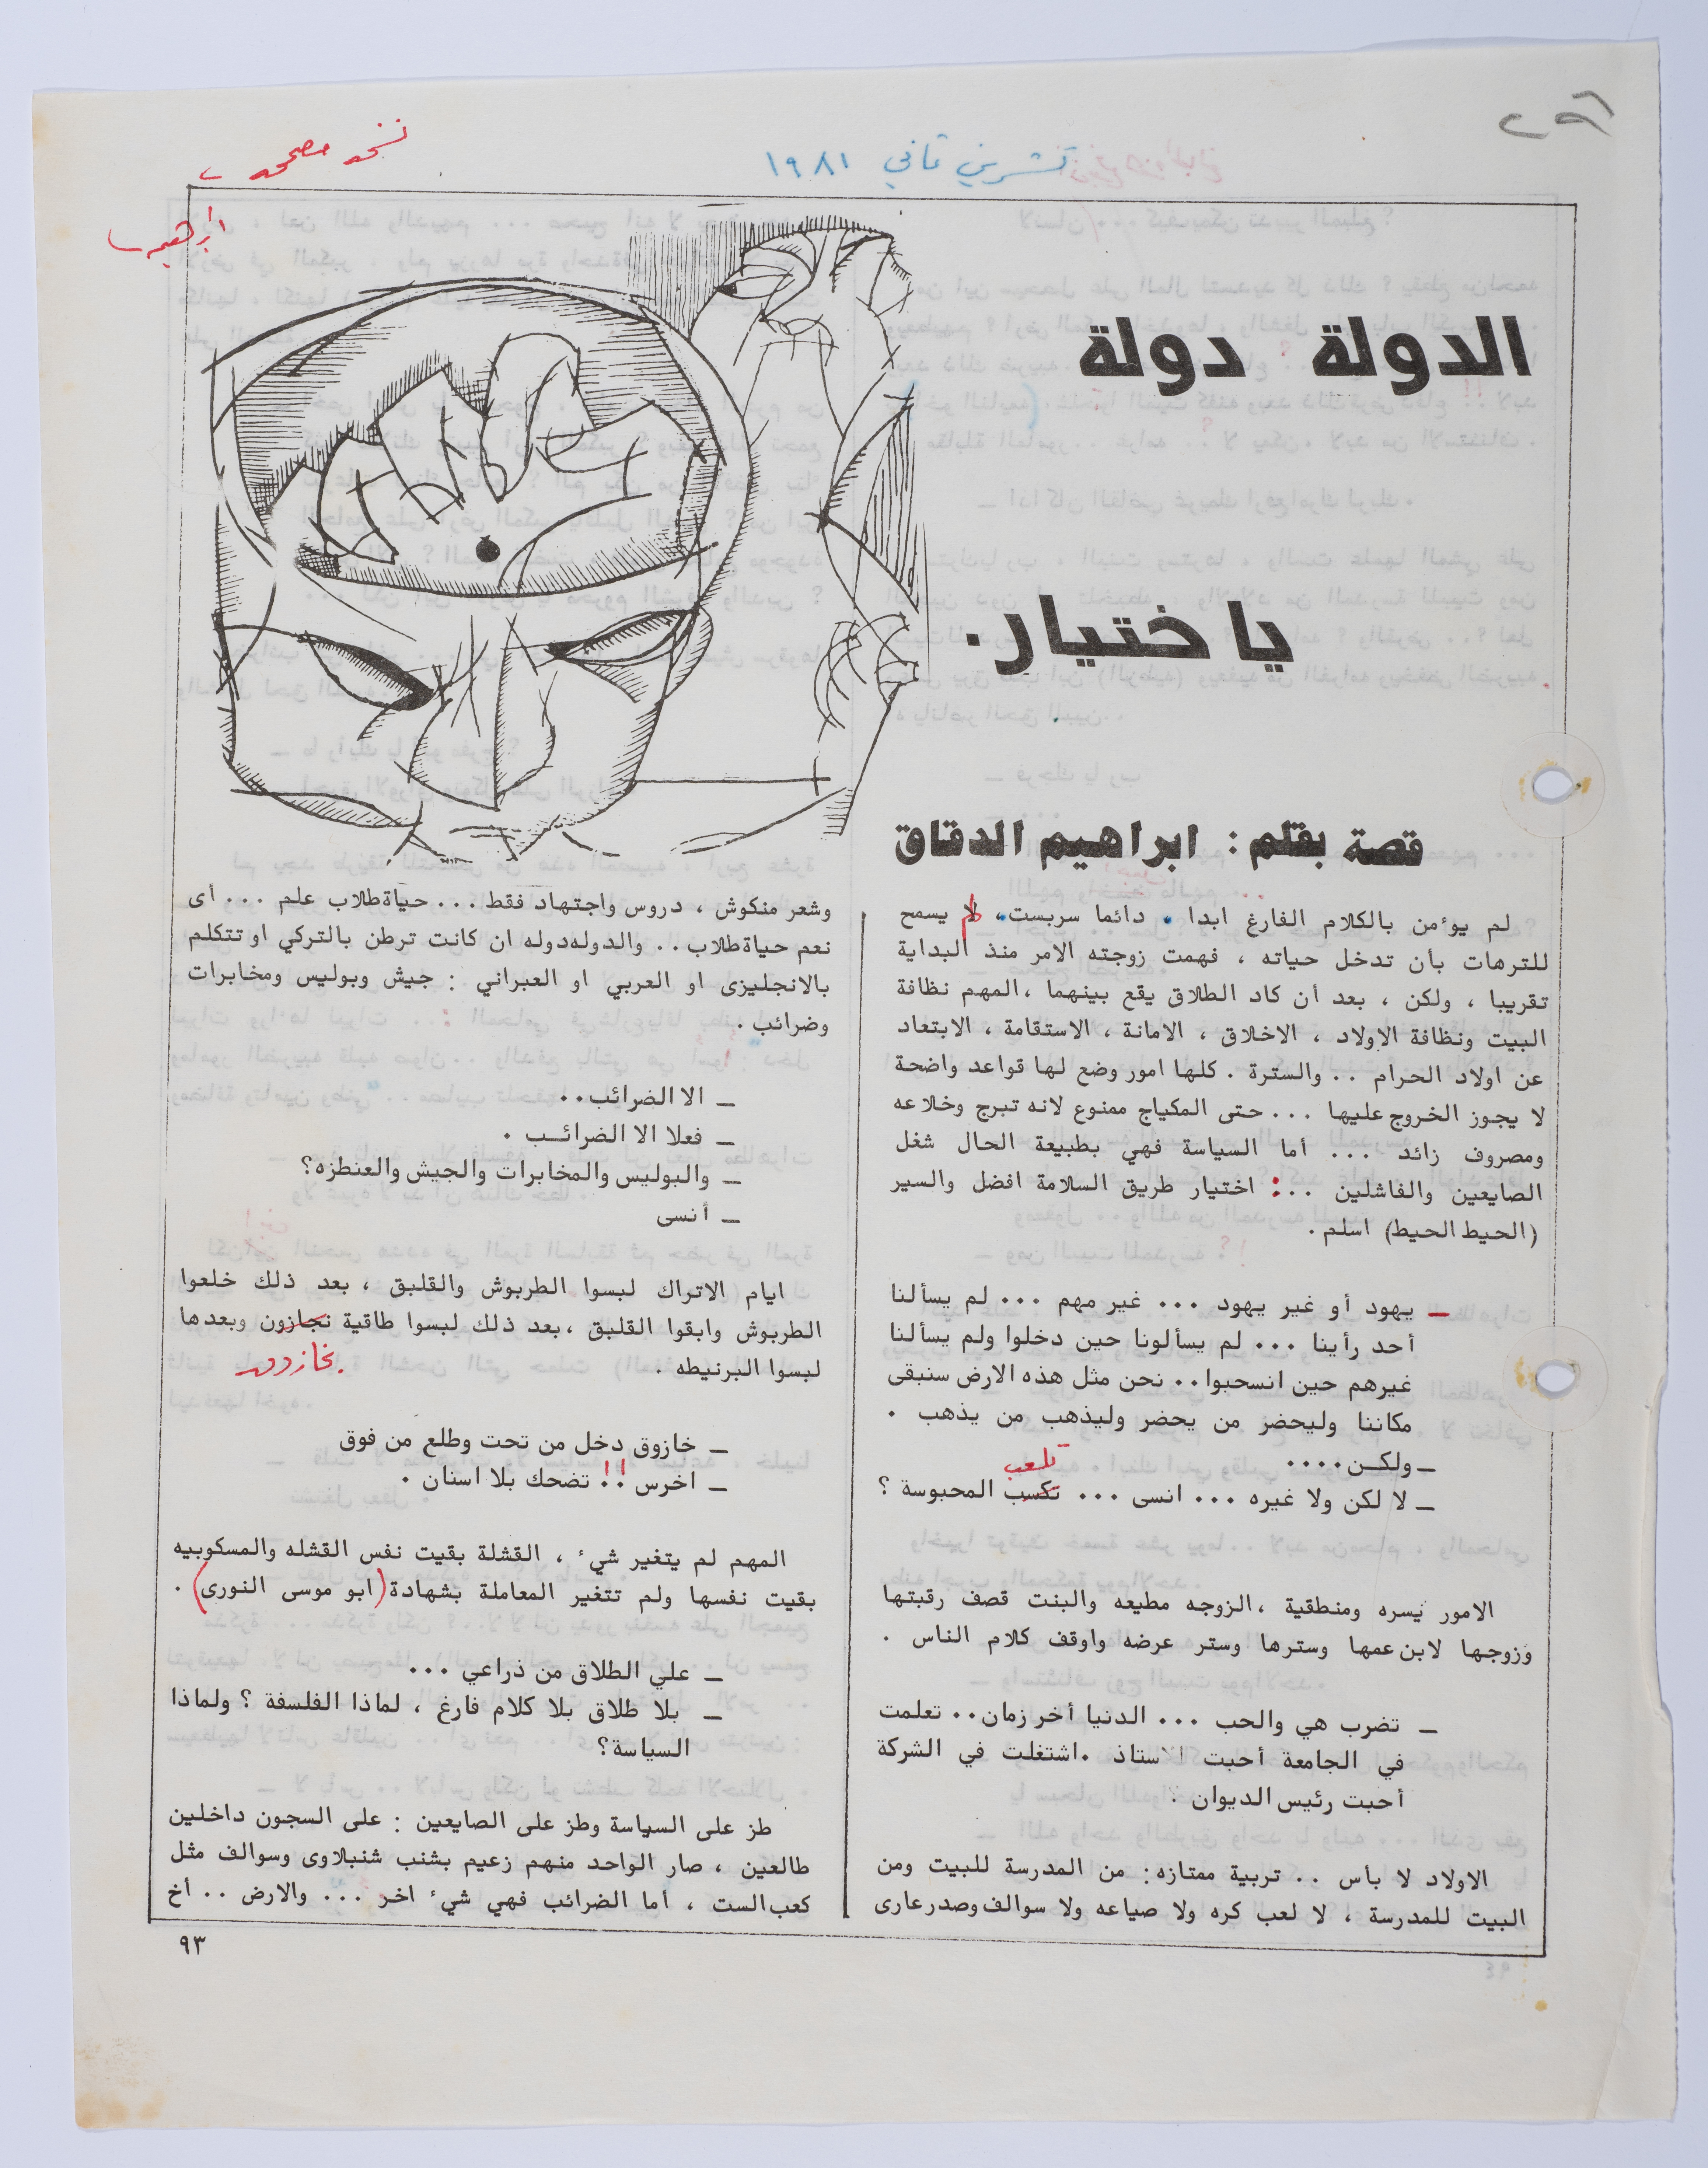 نسخة مصححة
ابراهيم
تشرين ثاني ١٩٨١
الدولة دولة
يا ختيار.
قصة بقلم: ابراهيم الدقاق
لم يوٴمن بالكلام الفارغ ابدا . دائما سربست، لم يسمح
للترهات بأن تدخل حياته ، فهمت زوجته الامر منذ البداية
تقريبا ، ولكن ، بعد أن كاد الطلاق يقع بينهما ،المهم نظافة
البيت ونظافة الاولاد ، الاخلاق ، الامانة ، الاستقامة ، الابتعاد
عن اولاد الحرام .. والسترة . كلها امور وضع لها قواعد واضحة
لا يجوز الخروج عليها ... حتى المكياج ممنوع لانه تبرج وخلاعه
ومصروف زائد ... أما السياسة فهي بطبيعة الحال شغل
الصايعين والفاشلين ..: اختيار طريق السلامة افضل والسير
(الحيط الحيط) اسلم .
ـ يهود أو غير يهود ... غير مهم ... لم يسألنا
أحد رأينا ... لم يسألونا حين دخلوا ولم يسألنا
غيرهم حين انسحبوا.. نحن مثل هذه الارض سنبقى
مكاننا وليحضر من يحضر وليذهب من يذهب .
ـ ولكـن....
تلعب
ـ لا لكن ولا غيره ... انسى ... تكسب المحبوسة ؟
الامور يسره ومنطقية ،الزوجه مطيعه والبنت قصف رقبتها
وزوجها لابن عمها وسترها وستر عرضه واوقف كلام الناس .
ـ تضرب هي والحب ... الدنيا أخر زمان.. تعلمت
في الجامعة أحبت الاستاذ .اشتغلت في الشركة
أحبت رئيس الديوان
الاولاد لا بأس .. تربية ممتازه: من المدرسة للبيت ومن
البيت للمدرسة ، لا لعب كره ولا صياعه ولا سوالف وصدر عارى
وشعر منكوش ، دروس واجتهاد فقط ... حياة طلاب علم ... أى
نعم حياة طلاب .. والدوله دوله ان كانت ترطن بالتركي او تتكلم
بالانجليزى او العربي او العبراني : جيش وبوليس ومخابرات
وضرائب .
ـ الا الضرائب..
ـ فعلا الا الضرائـب .
ـ والبوليس والمخابرات والجيش والعنطزه؟
ـ أنسى
ايام الاتراك لبسوا الطربوش والقلبق ، بعد ذلك خلعوا
الطربوش وابقوا القلبق ،بعد ذلك لبسوا طاقية نجازون وبعدها
لبسوا البرنيطه .
ـ خازوق دخل من تحت وطلع من فوق
ـ اخرس !! تضحك بلا اسنان .
المهم لم يتغير شيٴ ، القشلة بقيت نفس القشله والمسكوبيه
بقيت نفسها ولم تتغير المعاملة بشهادة (ابو موسى النورى) .
ـ علي الطلاق من ذراعي ...
ـ بلا طلاق بلا كلام فارغ ، لماذا الفلسفة ؟ ولماذا
السياسة؟
طز على السياسة وطز على الصايعين : على السجون داخلين
طالعين ، صار الواحد منهم زعيم بشنب شنبلاوى وسوالف مثل
كعب الست ، أما الضرائب فهي شيٴ اخر ... والارض .. أخ
٩٣